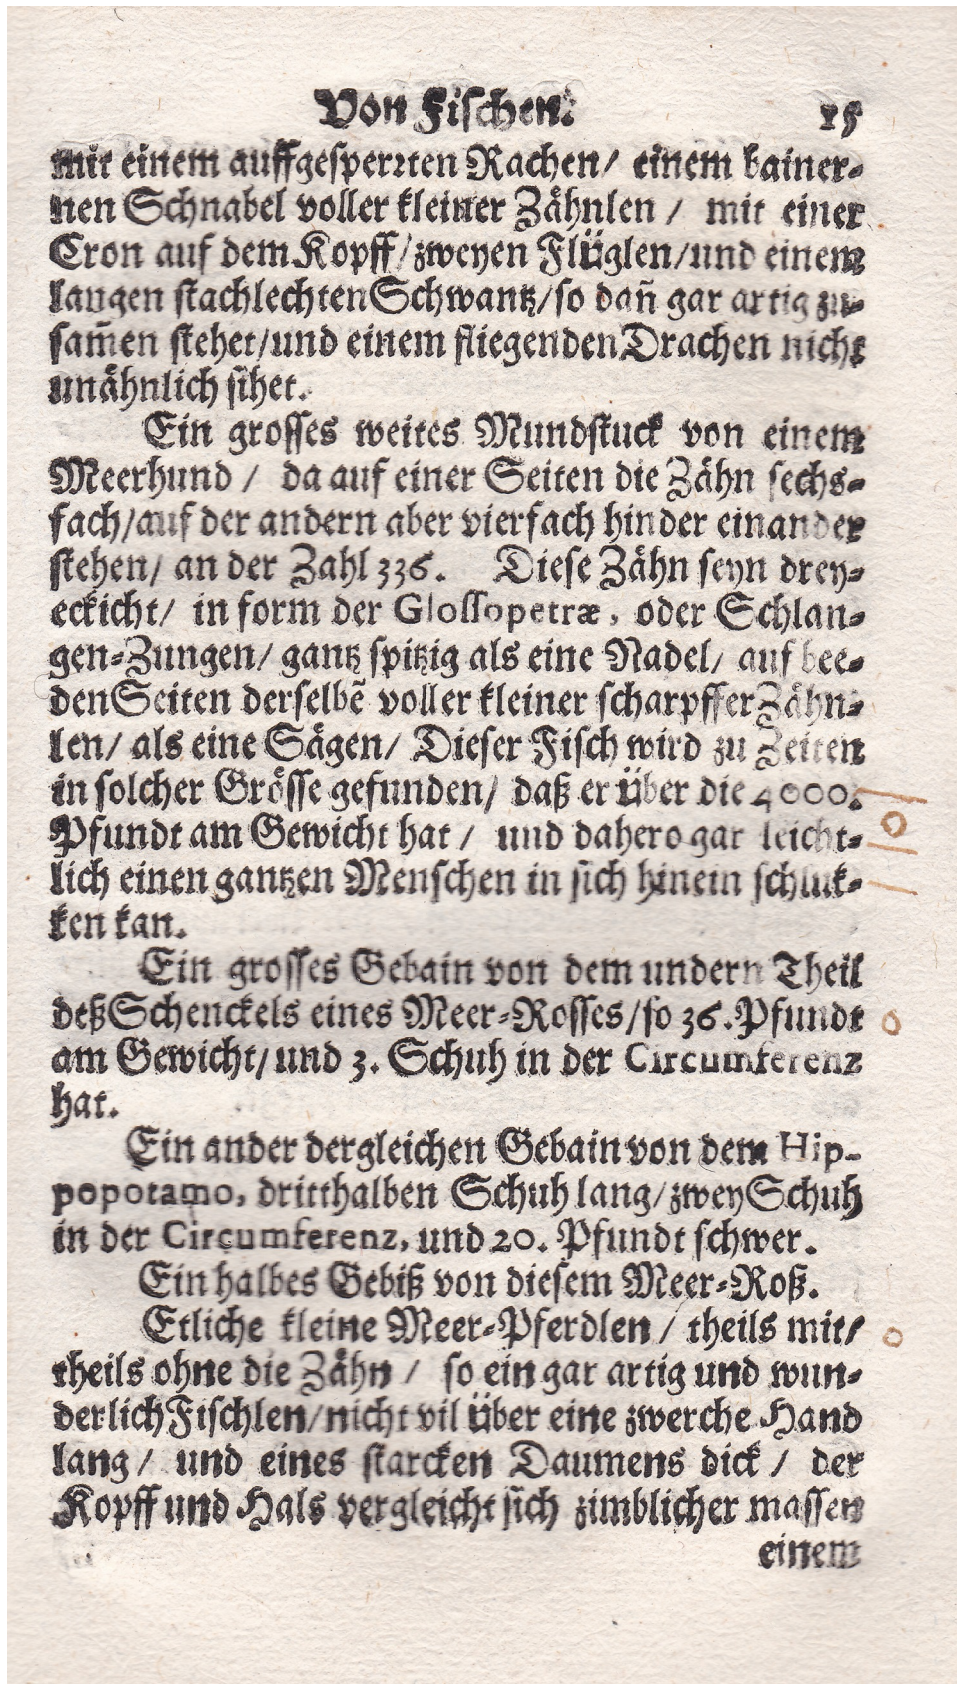 Von Fischen. 15
mit einem auffgesperꝛten Rachen/ einem bainer-
nen Schnabel voller kleiner Zähnlen / mit einer
Cron auf dem Kopff/zweyen Flüglen/und einem
langen stachlechten Schwantz/so dañ gar artig zu-
sam̃en stehet/und einem fliegenden Drachen nicht
unähnlich sihet.
Ein grosses weites Mundstuck von einem
Meerhund / da auf einer Seiten die Zähn sechs-
fach/auf der andern aber vierfach hinder einander
stehen/ an der Zahl 336. Diese Zähn seyn drey-
eckicht/ in form der Glossopetræ, oder Schlan-
gen-Zungen/ gantz spitzig als eine Nadel/ auf bee-
den Seiten derselbẽ voller kleiner scharpffer Zähn-
len/ als eine Sägen/ Dieser Fisch wird zu Zeiten
in solcher Grösse gefunden/ daß er über die 4000.
Pfundt am Gewicht hat / und dahero gar leicht-
lich einen gantzen Menschen in sich hinein schluk-
ken kan.
Ein grosses Gebain von dem undern Theil
deß Schenckels eines Meer-Rosses/so 36. Pfundt
am Gewicht/und 3. Schuh in der Circumferenz
hat.
Ein ander dergleichen Gebain von dem Hip-
popotamo, dritthalben Schuh lang/zwey Schuh
in der Circumferenz, und 20. Pfundt schwer.
Ein halbes Gebiß von diesem Meer-Roß.
Etliche kleine Meer-Pferdlen / theils mit/
theils ohne die Zähn / so ein gar artig und wun-
derlich Fischlen/nicht vil über eine zwerche Hand
lang / und eines starcken Daumens dick / der
Kopff und Hals vergleicht sich zimblicher massen
einem